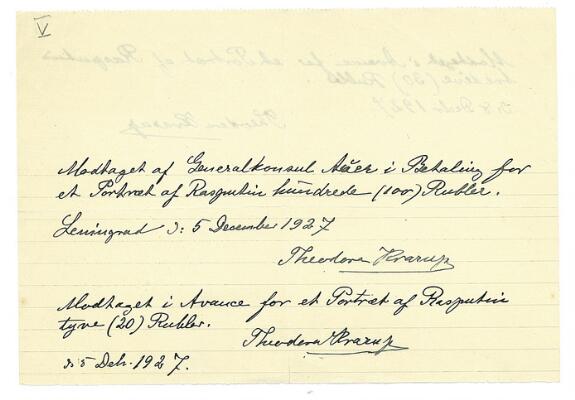 V
Modtaget af Generalkonsul
i Betaling for
et Portræt af Rasputin hundrede (100) Rubler.
Leningrad d: 5 December 1927
Theodora Krarup
Modtaget i Avance for et Portræt af Rasputin
tyve (20) Rubler.
Theodora Krarup
d: 5 Dcbr. 1927.